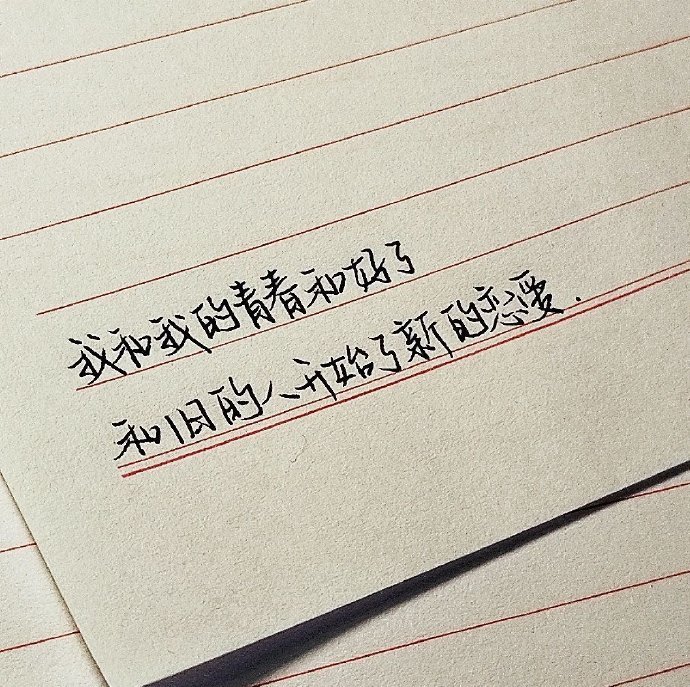 我和我的青春和好了
和旧的人开始了新的恋爱.